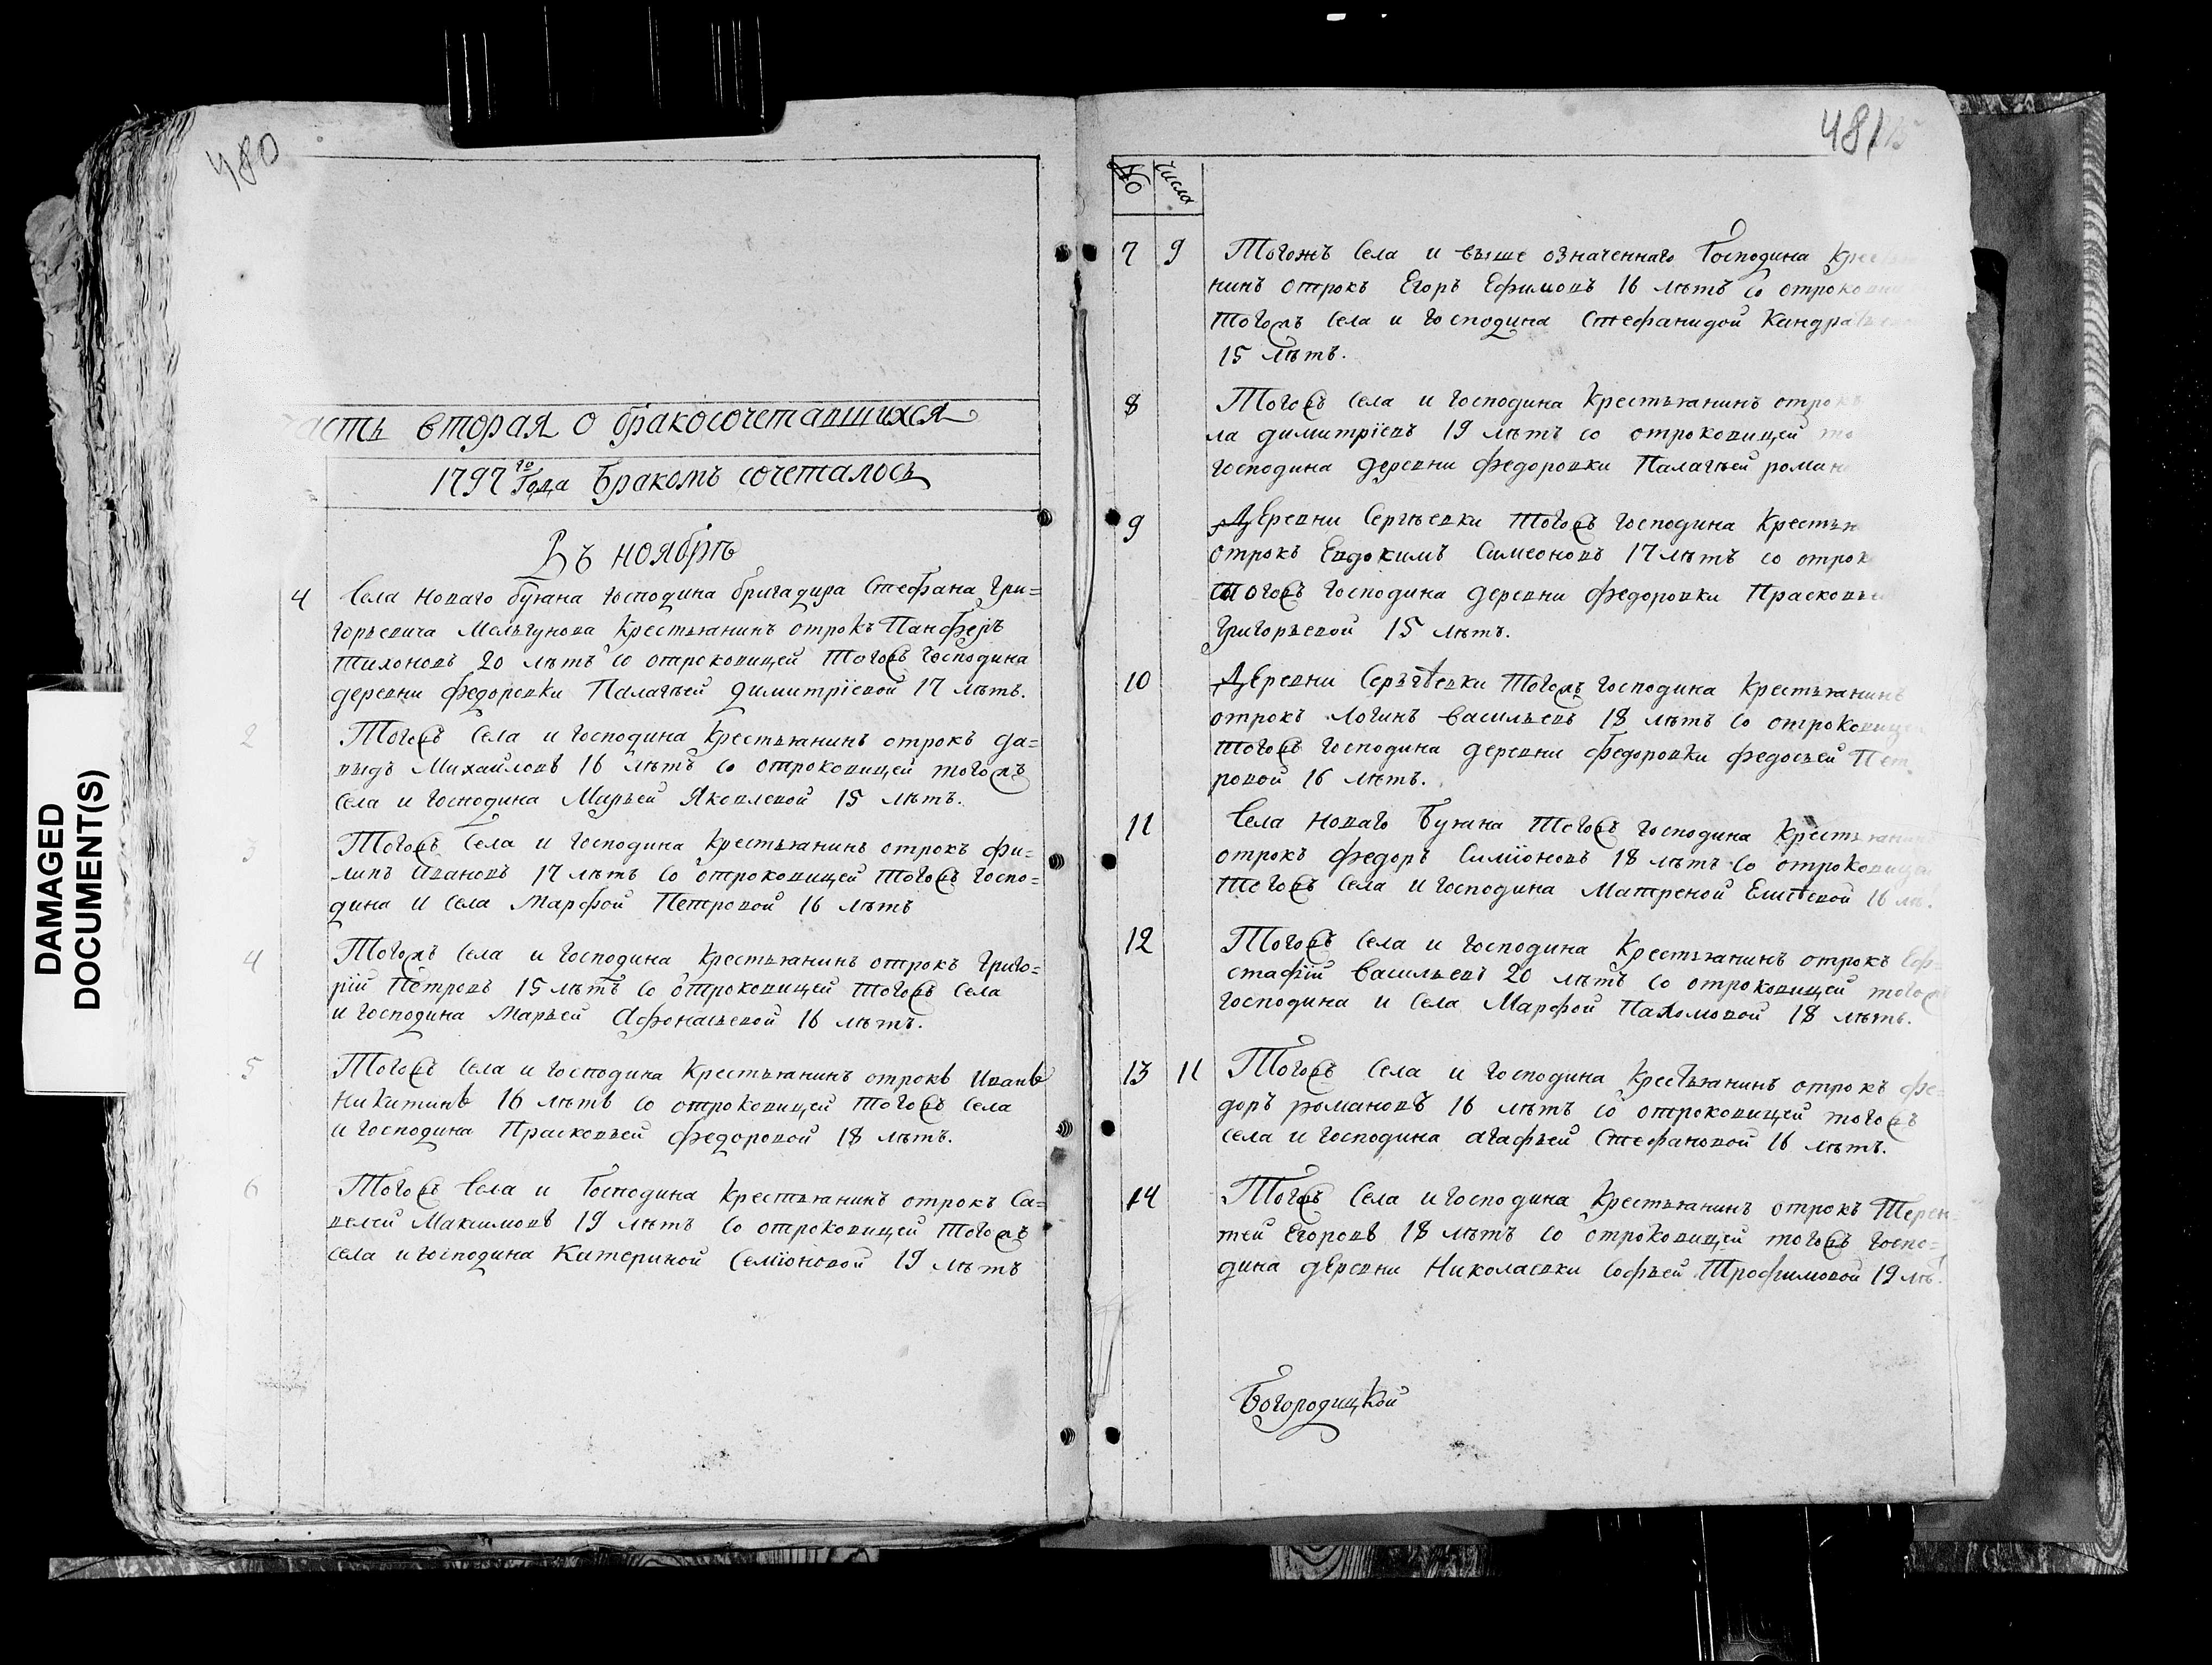 480
асть вторая о бракосочетавшихся
1797го Года Бракомъ сочеталось
Въ ноябрѣ
4 Села Новаго буяна господина бригадира Стефана Гри=
горьевича Мельгунова Крестьянинъ отрокъ Панферъ
Тихоновъ 20 лѣтъ со отроковицей Тогожъ господина
деревни федоровки Палагѣей Димитрїевой 17 лѣтъ.
2 Тогожъ Села и господина Крестьянинъ отрокъ да=
выдъ Михайловъ 16 лѣтъ со отроковицей тогожъ
Села и господина Марьей Яковлевой 15 лѣтъ.
3 Тогожъ Села и господина Крестьянинъ отрокъ фи=
липъ Ивановъ 17 лѣтъ со отроковицей Тогожъ госпо=
дина и Села Марфой Петровой 16 лѣтъ
4 Тогожъ Села и господина Крестьянинъ отрокъ Григо=
рїй Петровъ 15 лѣтъ со отроковицей Тогожъ Села
и господина Марьей Афонасьевой 16 лѣтъ.
5 Тогожъ Села и господина Крестьянинъ отрокъ Иванъ
Никитинъ 16 лѣтъ со отроковицей Тогожъ Села
и господина Прасковьей федоровой 18 лѣтъ.
6 Тогожъ Села и Господина Крестьянинъ отрокъ Са=
велей Максимовъ 19 лѣтъ со отроковицей Тогожъ
Села и господина Катериной Семїоновой 19 лѣтъ
481
№ Числа
7 9 Тогожъ Села и выше означеннаго Господина Крес
нинъ отрокъ Егоръ Ефимовъ 16 лѣтъ со отрокови
Тогожъ Села и господина Стефанидой Кандрать
15 лѣтъ.
8 Тогожъ Села и господина Крестьянинъ отрокъ
ла димитрїевъ 19 лѣтъ со отроковицей то
господина деревни федоровки Палагѣей роман
9 Деревни Сергѣевки Тогожъ господина Крестьян
отрокъ Евдокимъ Симеоновъ 17 лѣтъ со отрок
Тогожъ господина деревни федоровки Прасковье
Григорьевой 15 лѣтъ.
10 Деревни Серъгѣевки Тогожъ господина Крестьянинъ
отрокъ Логинъ Васильевъ 18 лѣтъ со отроковице
Тогожъ господина деревни федоровки федосьей Пет
ровой 16 лѣтъ.
11 Села Новаго Буяна Тогожъ господина Крестьянин
отрокъ федоръ Симїоновъ 18 лѣтъ со отроковице
Тогожъ Села и господина Матреной Елисѣевой 16 лѣ.
12 Тогожъ Села и господина Крестьянинъ отрокъ
стафїй Васильевъ 20 лѣтъ со отроковицей тогож
господина и Села Марфой Пахомовой 18 лѣтъ.
13 11 Тогожъ Села и господина Крестьянинъ отрокъ фе=
доръ романовъ 16 лѣтъ со отроковицей тогожъ
Села и господина агафьей Стефановой 16 лѣтъ.
14 Тогожъ Села и господина Крестьянинъ отрокъ Терен=
тей Егоровъ 18 лѣтъ со отроковицей тогожъ госпо=
дина деревни Николаевки Софьей Трофимовой 19 лѣ.
Богородицкой
DAMAGED
DOCUMENT(S)